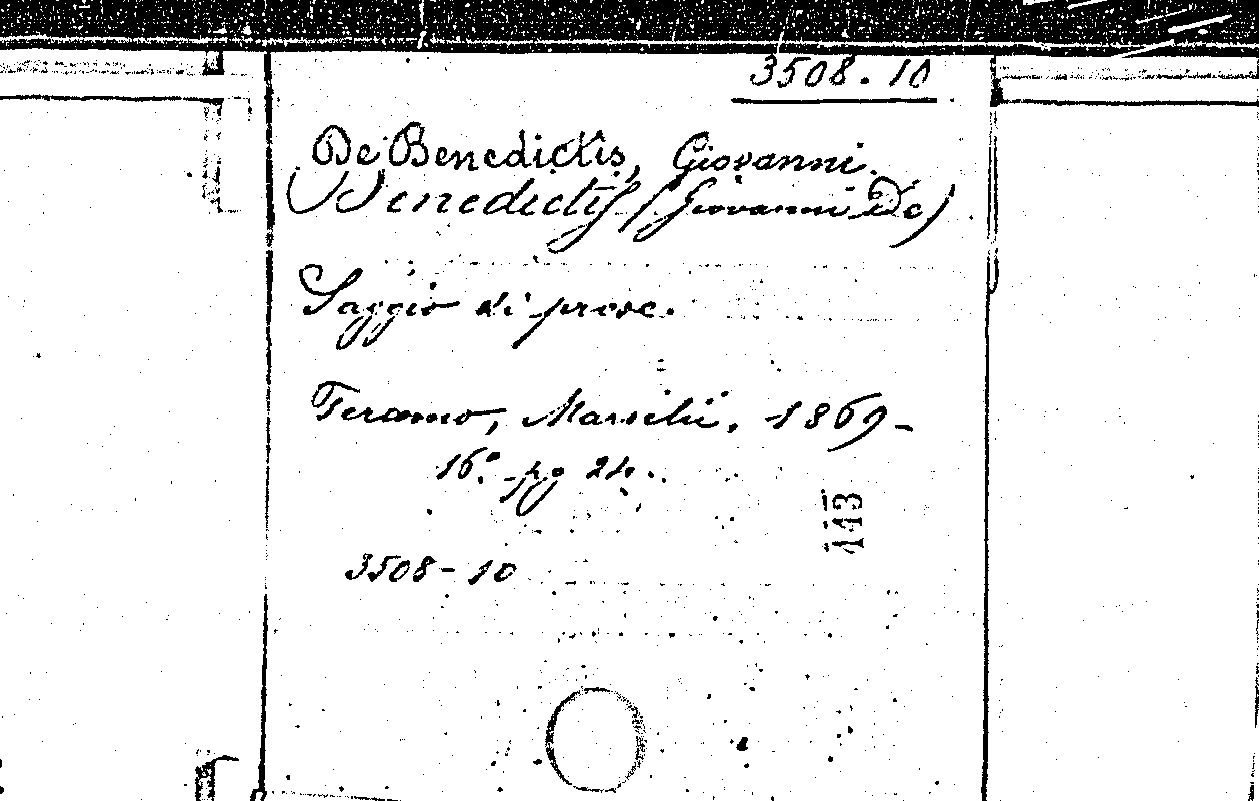 3508.10
De Benedictis, Giovanni.
Benedictis (Giovanni De)
Saggio di prose.
Teramo, Marsilii. 1869-
16.° pg 24.
113
3508-10